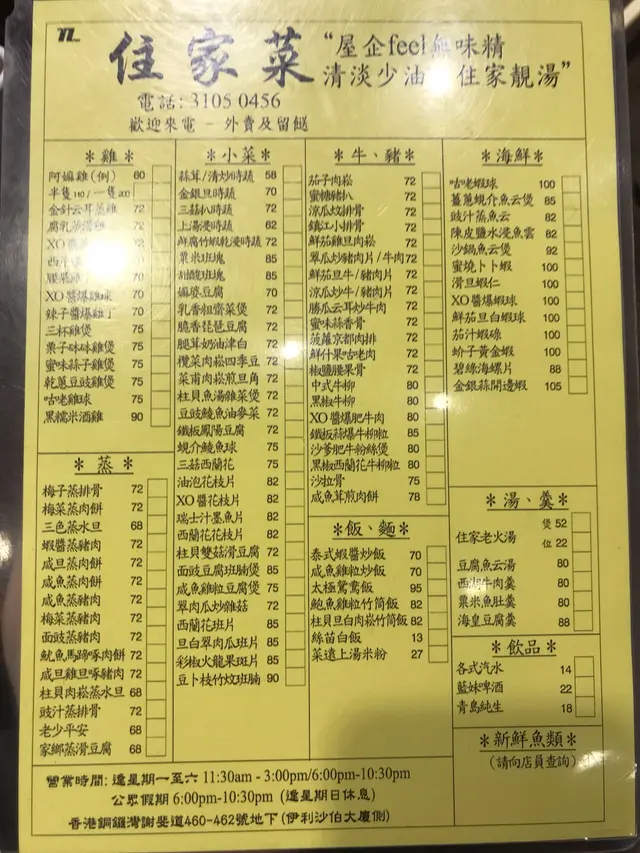 住家菜
“屋企feel無味精
清淡少油 住家靚湯”
電話: 3105 0456
歡迎來電 - 外賣及留餸
＊雞＊
阿嫲雞(例) 60
半隻110/一隻200
金針云耳蒸雞 72
腐乳蒸滑雞 72
XO醬 72
西
腰果雞 70
XO醬爆雞球 70
辣子醬爆雞丁 70
三杯雞煲 75
栗子砵砵雞煲 75
蜜味蒜子雞煲 75
乾蔥豆豉雞煲 75
咕老雞球 75
黑糯米酒雞 90
＊蒸＊
梅子蒸排骨 72
梅菜蒸肉餅 72
三色蒸水旦 68
蝦醬蒸豬肉 72
咸旦蒸肉餅 72
咸魚蒸肉餅 72
咸魚蒸豬肉 72
梅菜蒸豬肉 72
面豉蒸豬肉 72
魷魚馬蹄啄肉餅 72
咸旦雞旦啄豬肉 72
柱貝肉崧蒸水旦 68
豉汁蒸排骨 72
老少平安 68
家鄉蒸滑豆腐 68
＊小菜＊
蒜茸/清炒時蔬 58
金銀旦時蔬 70
三菇扒時蔬 72
上湯浸時蔬 62
鮮腐竹蝦乾浸時蔬 72
粟米班塊 85
甜酸班塊 85
嫲婆豆腐 70
乳香粗齋菜煲 72
脆香琵琶豆腐 72
腿茸奶油津白 72
欖菜肉崧四季豆 72
菜甫肉崧煎旦角 72
柱貝魚湯雜菜煲 72
豆豉鯪魚油麥菜 72
鐵板鳳陽豆腐 72
蜆介鯪魚球 75
三菇西蘭花 75
油泡花枝片 82
XO醬花枝片 82
瑞士汁墨魚片 82
西蘭花花枝片 82
柱貝雙菇滑豆腐 72
面豉豆腐班腩煲 85
咸魚雞粒豆腐煲 75
翠肉瓜炒雜菇 72
西蘭花班片 85
旦白翠肉瓜班片 85
彩椒火龍果班片 85
豆卜枝竹炆班腩 90
＊牛、豬＊
茄子肉崧 72
蜜糖豬扒 72
涼瓜炆排骨 72
鎮江小排骨 72
鮮茄雞旦肉崧 72
翠瓜炒豬肉片/牛肉 72
鮮茄旦牛/豬肉片 72
涼瓜炒牛/豬肉片 72
勝瓜云耳炒牛肉 72
蜜味蒜香骨 72
菠蘿京都肉排 72
鮮什果咕老肉 72
椒鹽腰果骨 72
中式牛柳 80
黑椒牛柳 80
XO醬爆肥牛肉 80
鐵板蒜爆牛柳粒 85
沙爹肥牛粉絲煲 80
黑椒西蘭花牛柳粒 80
沙拉骨 75
咸魚茸煎肉餅 78
＊飯、麵＊
泰式蝦醬炒飯 70
咸魚雞粒炒飯 70
太極鴛鴦飯 95
鮑魚雞粒竹筒飯 82
柱貝旦白肉崧竹筒飯 82
絲苗白飯 13
菜遠上湯米粉 27
＊海鮮＊
咕老蝦球 100
薑蔥蜆介魚云煲 85
豉汁蒸魚云 82
陳皮鹽水浸魚雲 82
沙鍋魚云煲 92
蜜燒卜卜蝦 100
滑旦蝦仁 100
XO醬爆蝦球 100
鮮茄旦白蝦球 100
茄汁蝦碌 100
蚧子黃金蝦 100
碧綠海螺片 88
金銀蒜開邊蝦 105
＊湯、羹＊
住家老火湯 煲 52
位 22
豆腐魚云湯 80
西湖牛肉羹 80
粟米魚肚羹 80
海皇豆腐羹 88
＊飲品＊
各式汽水 14
藍妹啤酒 22
青島純生 18
＊新鮮魚類＊
(請向店員查詢)
營業時間: 逢星期一至六 11:30am - 3:00pm/6:00pm-10:30pm
公眾假期 6:00pm-10:30pm (逢星期日休息)
香港銅鑼灣謝斐道460-462號地下(伊利沙伯大廈側)